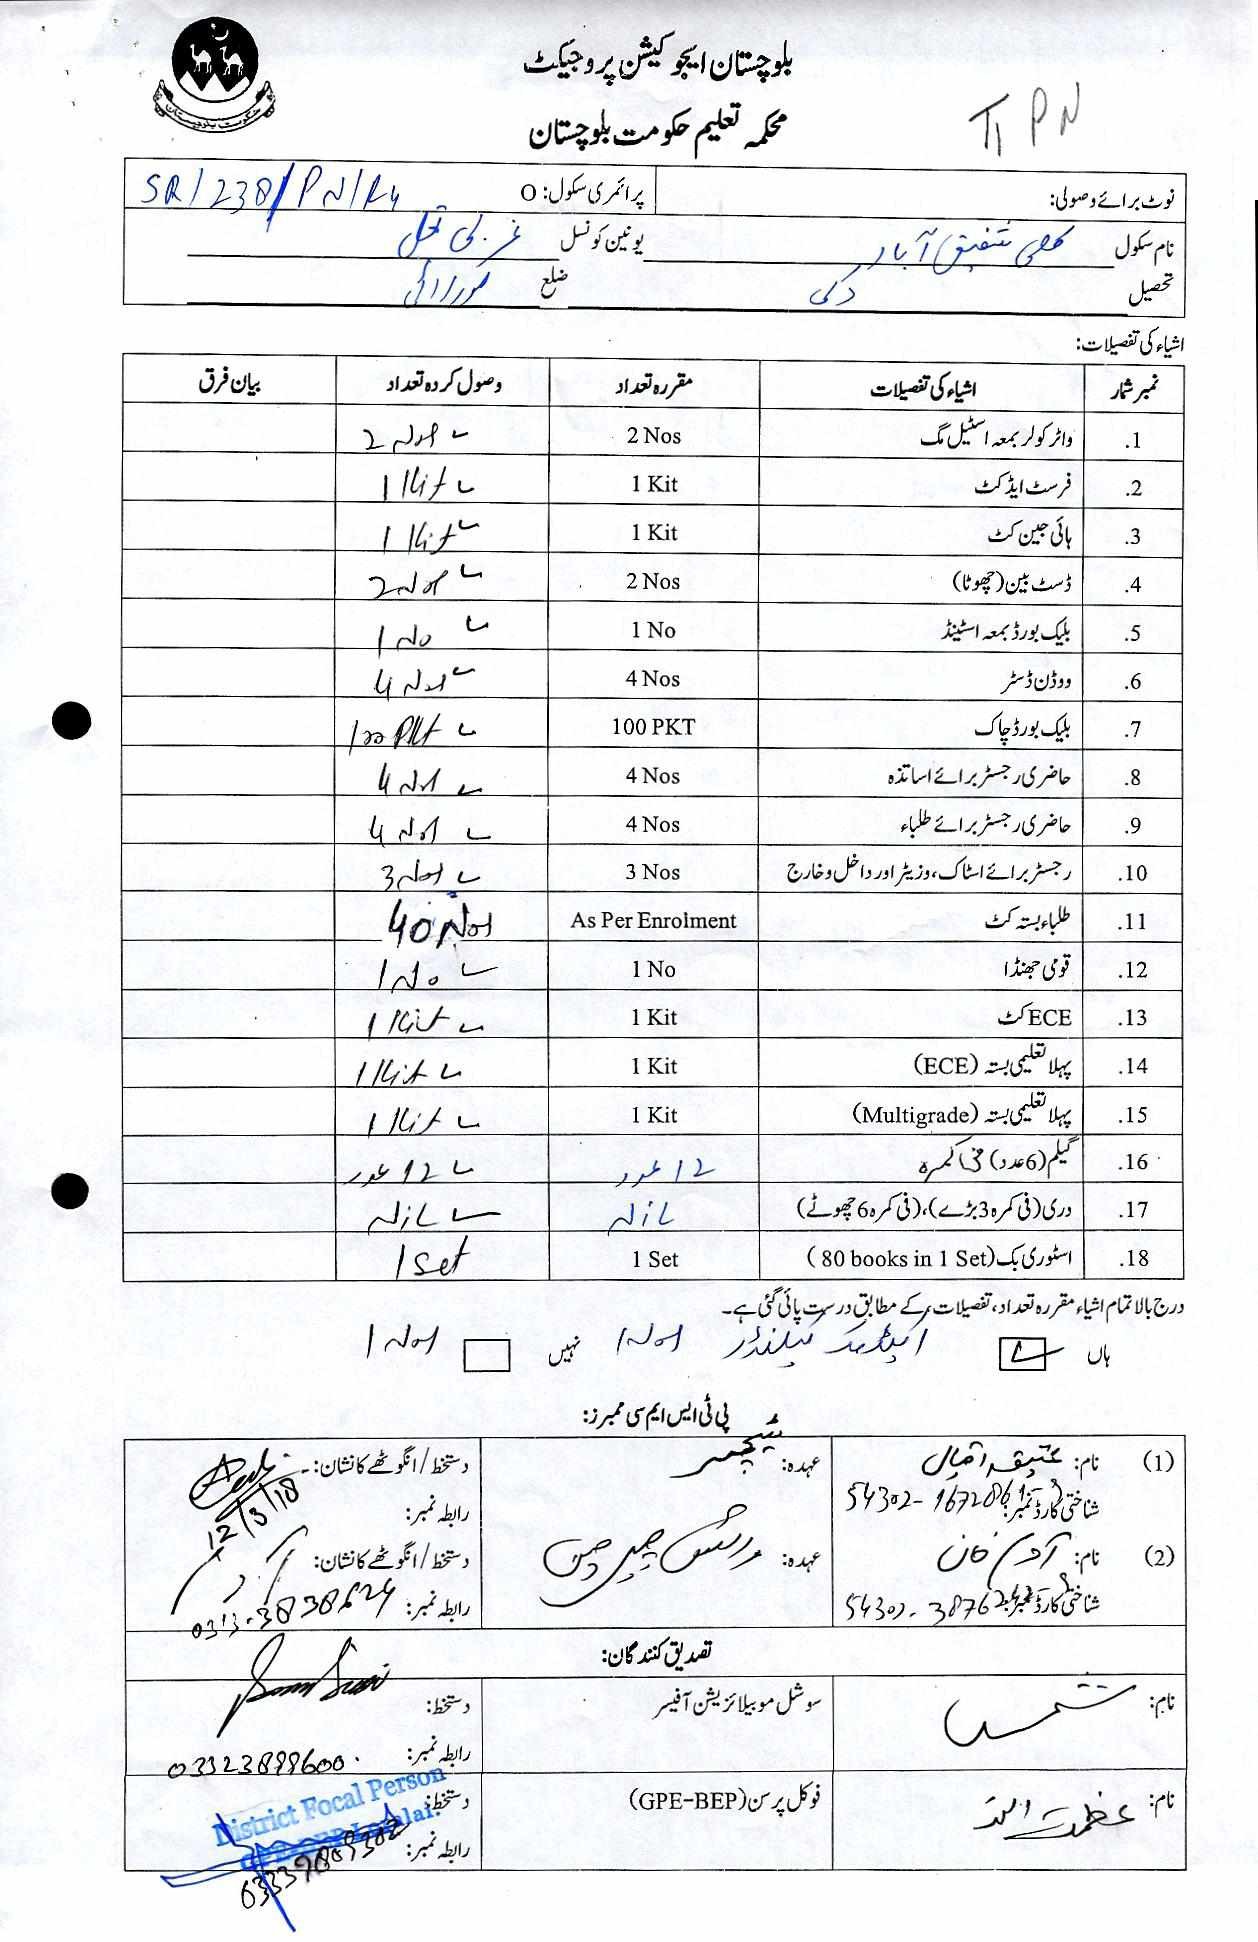 بلوچستان ایجوکیشن پروجیکٹ
محکمہ تعلیم حکومت بلوچستان
حکومت بلوچستان
نوٹ برائے وصولی: پرائمری سکول: O SR/238/PN/
نام سکول کلی شفیق آباد یونین کونسل غربی
تحصیل دکی ضلع لورالائی
اشیاء کی تفصیلات:
نمبر شمار اشیاء کی تفصیلات مقررہ تعداد وصول کردہ تعداد بیان فرق
.1 واٹر کولر بمعہ اسٹیل مگ 2 Nos 2 Nos
.2 فرسٹ ایڈ کٹ 1 Kit 1 Kit
.3 ہائی جین کٹ 1 Kit 1 Kit
.4 ڈسٹ بین (چھوٹا) 2 Nos 2 Nos
.5 بلیک بورڈ بمعہ اسٹینڈ 1 No 1 No
.6 ووڈن ڈسٹر 4 Nos 4 Nos
.7 بلیک بورڈ چاک 100 PKT 100 PKT
.8 حاضری رجسٹر برائے اساتذہ 4 Nos 4 Nos
.9 حاضری رجسٹر برائے طلباء 4 Nos 4 Nos
.10 رجسٹر برائے اسٹاک، وزیٹر اور داخل و خارج 3 Nos 3 Nos
.11 طلباء بستہ کٹ As Per Enrolment 40 Nos
.12 قومی جھنڈا 1 No 1 No
.13 ECE کٹ 1 Kit 1 Kit
.14 پہلا تعلیمی بستہ (ECE) 1 Kit 1 Kit
.15 پہلا تعلیمی بستہ (Multigrade) 1 Kit 1 Kit
.16 گیلم (6 عدد) فی کمرہ 12 عدد 12 عدد
.17 دری (فی کمرہ 3 بڑے)، (فی کمرہ 6 چھوٹے)
.18 اسٹوری بک (80 books in 1 Set) 1 Set 1 Set
درج بالا تمام اشیاء مقررہ تعداد، تفصیلات کے مطابق درست پائی گئی ہے۔
ہاں کیلنڈر 1 Nos نہیں 1 Nos
پی ٹی ایس ایم سی ممبرز:
(1) نام: عتیقہ اقبال عہدہ: ٹیچر دستخط / انگوٹھے کا نشان:
شناختی کارڈ نمبر: رابطہ نمبر: 12/3/18
(2) نام: آدم خان عہدہ: دستخط / انگوٹھے کا نشان:
شناختی کارڈ نمبر: رابطہ نمبر:
تصدیق کنندگان:
نام: شمس سوشل موبیلائزیشن آفیسر دستخط:
رابطہ نمبر: 03323898600
نام: عظمت اللہ فوکل پرسن (GPE-BEP) دستخط:
District Focal Person
رابطہ نمبر: